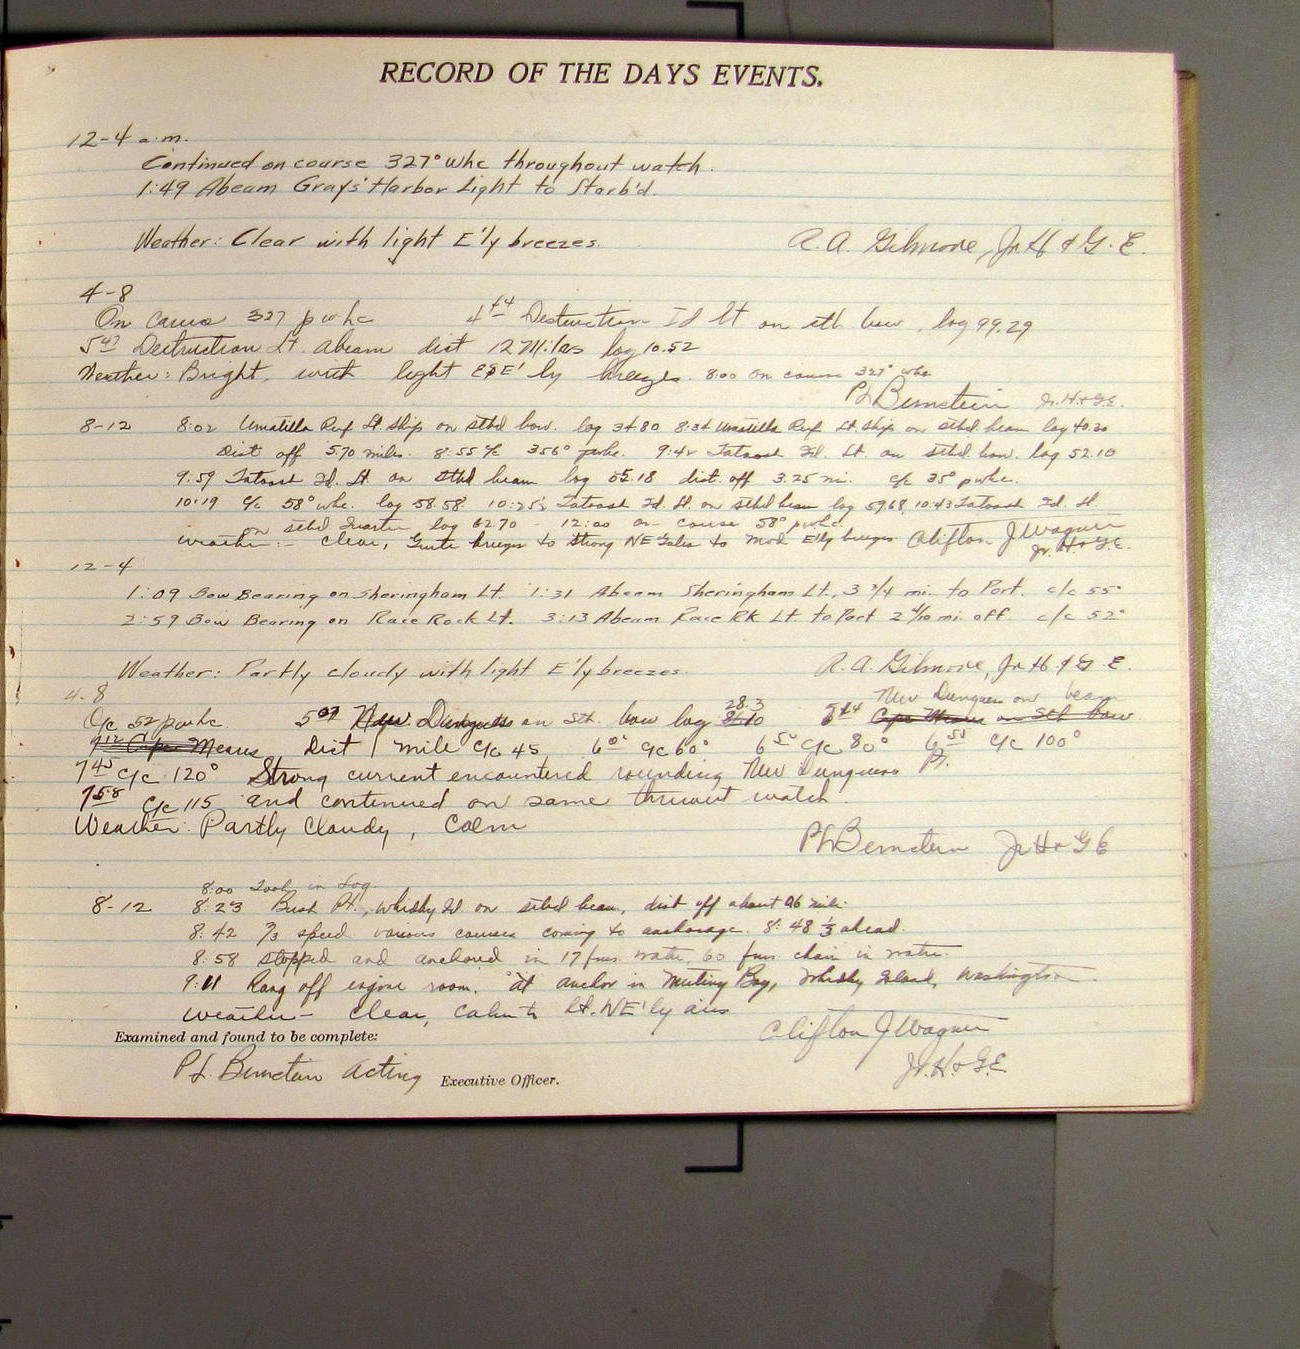 RECORD OF THE DAYS EVENTS.
12-4 a.m.
Continued on course 327° whc throughout watch.
1:49 Abeam Grays' Harbor Light to Starb'd.
Weather: Clear with light E'ly breezes. A. A. Gilmore, Jr. H & G. E.
4-8
On course 327 pwhc 4 Destruction Id Lt on stb bow, log 99.29
5 47 Destruction Lt. Abeam dist 12 Miles log 10.52
Weather: Bright, with light E'ly breezes. 8:00 on course 327° whc
PL Bernstein Jr. H. & G.E.
8-12 8:02 Umatilla Reef Lt. ship on stbd bow. log 34.80 8:34 Umatilla Reef Lt. ship on stbd beam log 40.20
Dist off 5.70 miles. 8:55 c/c 356° pwhc. 9:42 Tatoosh Id. Lt. on stbd. bow. log 52.10
9:59 Tatoosh Id. Lt. on stbd beam log 55.18 dist. off 3.25 mi. c/c 35° pwhc.
10:19 c/c 58° whc. log 58.58. 10:25½ Tatoosh Id. Lt. on stbd beam log 59.68, 10:43 Tatoosh Id. Lt.
on stbd Quarter log 62.70 - 12:00 on course 58° pwhc.
weather:- Clear, Gentle breezes to strong NE Gales to mod E'ly breezes Clifton J Wagner
Jr. H. & G.E.
12-4
1:09 Bow Bearing on Sheringham Lt. 1:31 Abeam Sheringham Lt., 3 3/4 mi. to Port. c/c 55°
2:59 Bow Bearing on Race Rock Lt. 3:13 Abeam Race Rk Lt. to Port 2 4/10 mi. off. c/c 52°
Weather: Partly cloudy with light E'ly breezes. A. A. Gilmore, Jr. H. & G. E.
4-8 28.3 New Dungeness on beam
C/c 52 pwhc. 5 07 New Dungeness on Stb. bow log on Stb bow
Dist 1 mile c/c 45 6 c/c 60° 6 50 c/c 80° c/c 100°
7 45 c/c 120° Strong current encountered rounding New Dungeness Pt.
7 58 c/c 115 and continued on same thruout watch.
Weather: Partly Cloudy, Calm
PL Bernstein Jr H & G E
8:00 Took in Log.
8-12 8:23 Bush Pt., Whidby Id. on stbd beam, dist off about 0.6 mile.
8:42 2/3 speed various courses coming to anchorage. 8:48 1/3 ahead.
8:58 stopped and anchored in 17 fms. water, 60 fms. chain in water.
9:11 Rang off engine room. At anchor in Mutiny Bay, Whidby Island, Washington
Weather- Clear, Calm to Lt. NE'ly airs
Examined and found to be complete: Clifton J Wagner
Jr. H. & G.E.
PL Bernstein Acting Executive Officer.